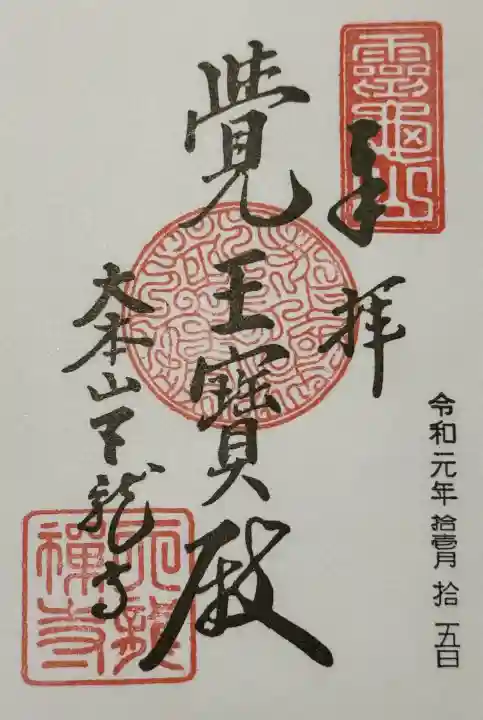 靈龜山
奉拝
覺王寶殿
大本山天龍寺
天龍禪寺
令和元年拾壹月拾五日